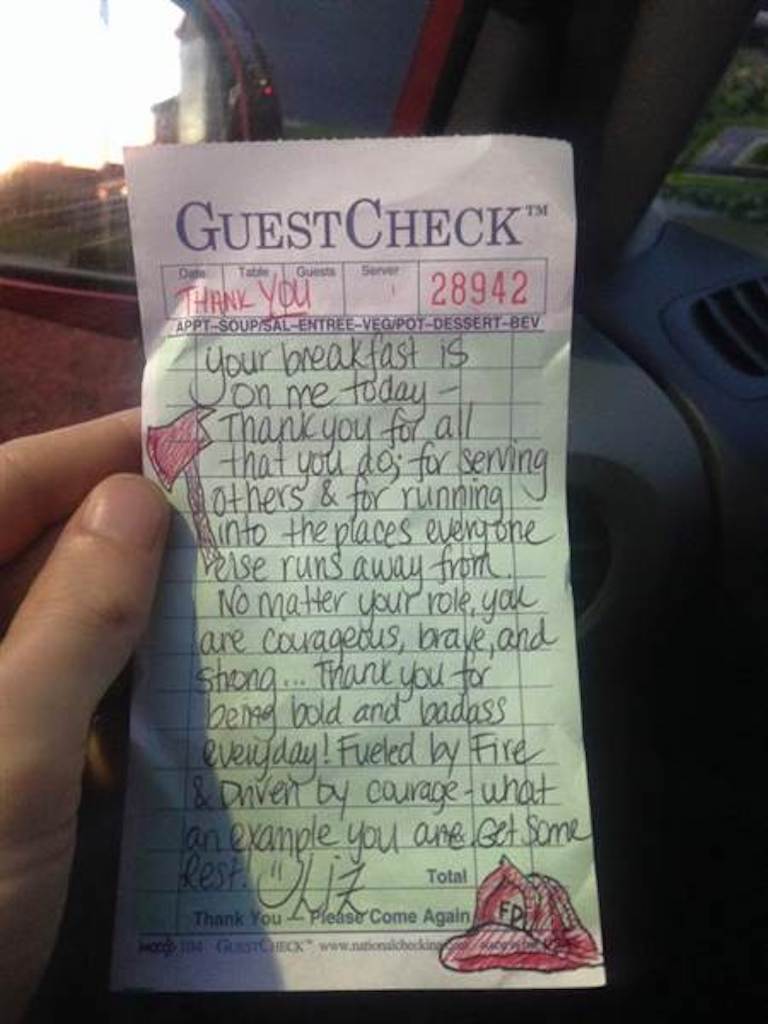 GUESTCHECK™
Date Table Guests Server
THANK YOU 28942
APPT-SOUP/SAL-ENTREE-VEG/POT-DESSERT-BEV
Your breakfast is
on me today -
Thank you for all
that you do; for serving
others & for running
into the places everyone
else runs away from.
No matter your role, you
are courageous, brave, and
strong... Thank you for
being bold and badass
everyday! Fueled by Fire
& Driven by courage - what
an example you are. Get some
Rest. Liz
Total
FD
Thank You - Please Come Again
104 GUESTCHECK™ www.nationalchecking